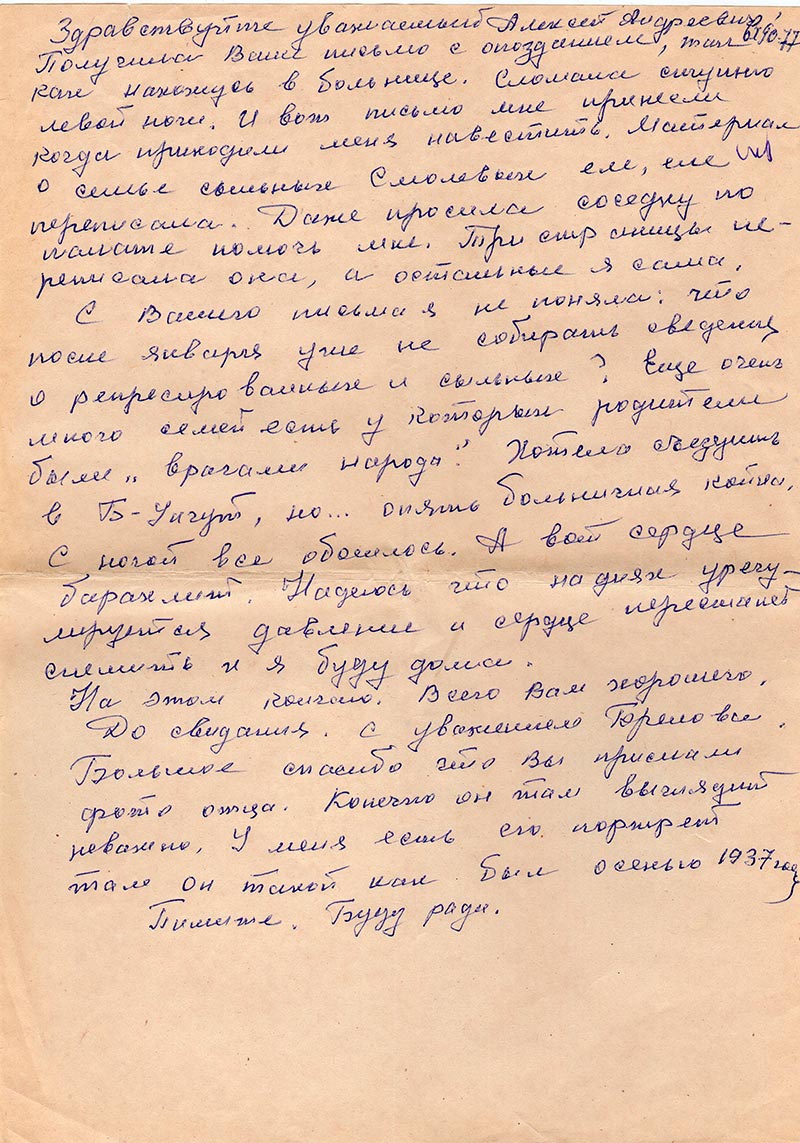 Здравствуйте уважаемый Алексей Андреевич!
Получила Ваше письмо с опозданием, так
как нахожусь в больнице. Сломала ступню
левой ноги. И вот письмо мне принесли
когда приходили меня навестить. Материал
о семье сыльных Смолевых еле, еле
переписала. Даже просила соседку по
палате помочь мне. Три страницы пе-
реписала она, а остальные я сама.
С Вашего письма я не поняла: что
после января уже не собирать сведения
о репресированных и сыльных? Еще очень
много семей есть у которых родители
были „врагами народа". Хотела съездить
в Б-Унгут, но... опять больничная койка.
С ногой все обошлось. А вот сердце
барахлит. Надеюсь что на днях урегу-
лируется давление и сердце перестанет
щемить и я буду дома.
На этом кончаю. Всего Вам хорошего.
До свидания. С уважением
Большое спасибо что Вы прислали
фото отца. Конечно он там выглядит
неважно. У меня есть его портрет
там он такой как был осенью 1937 года
Пишите. Буду рада.